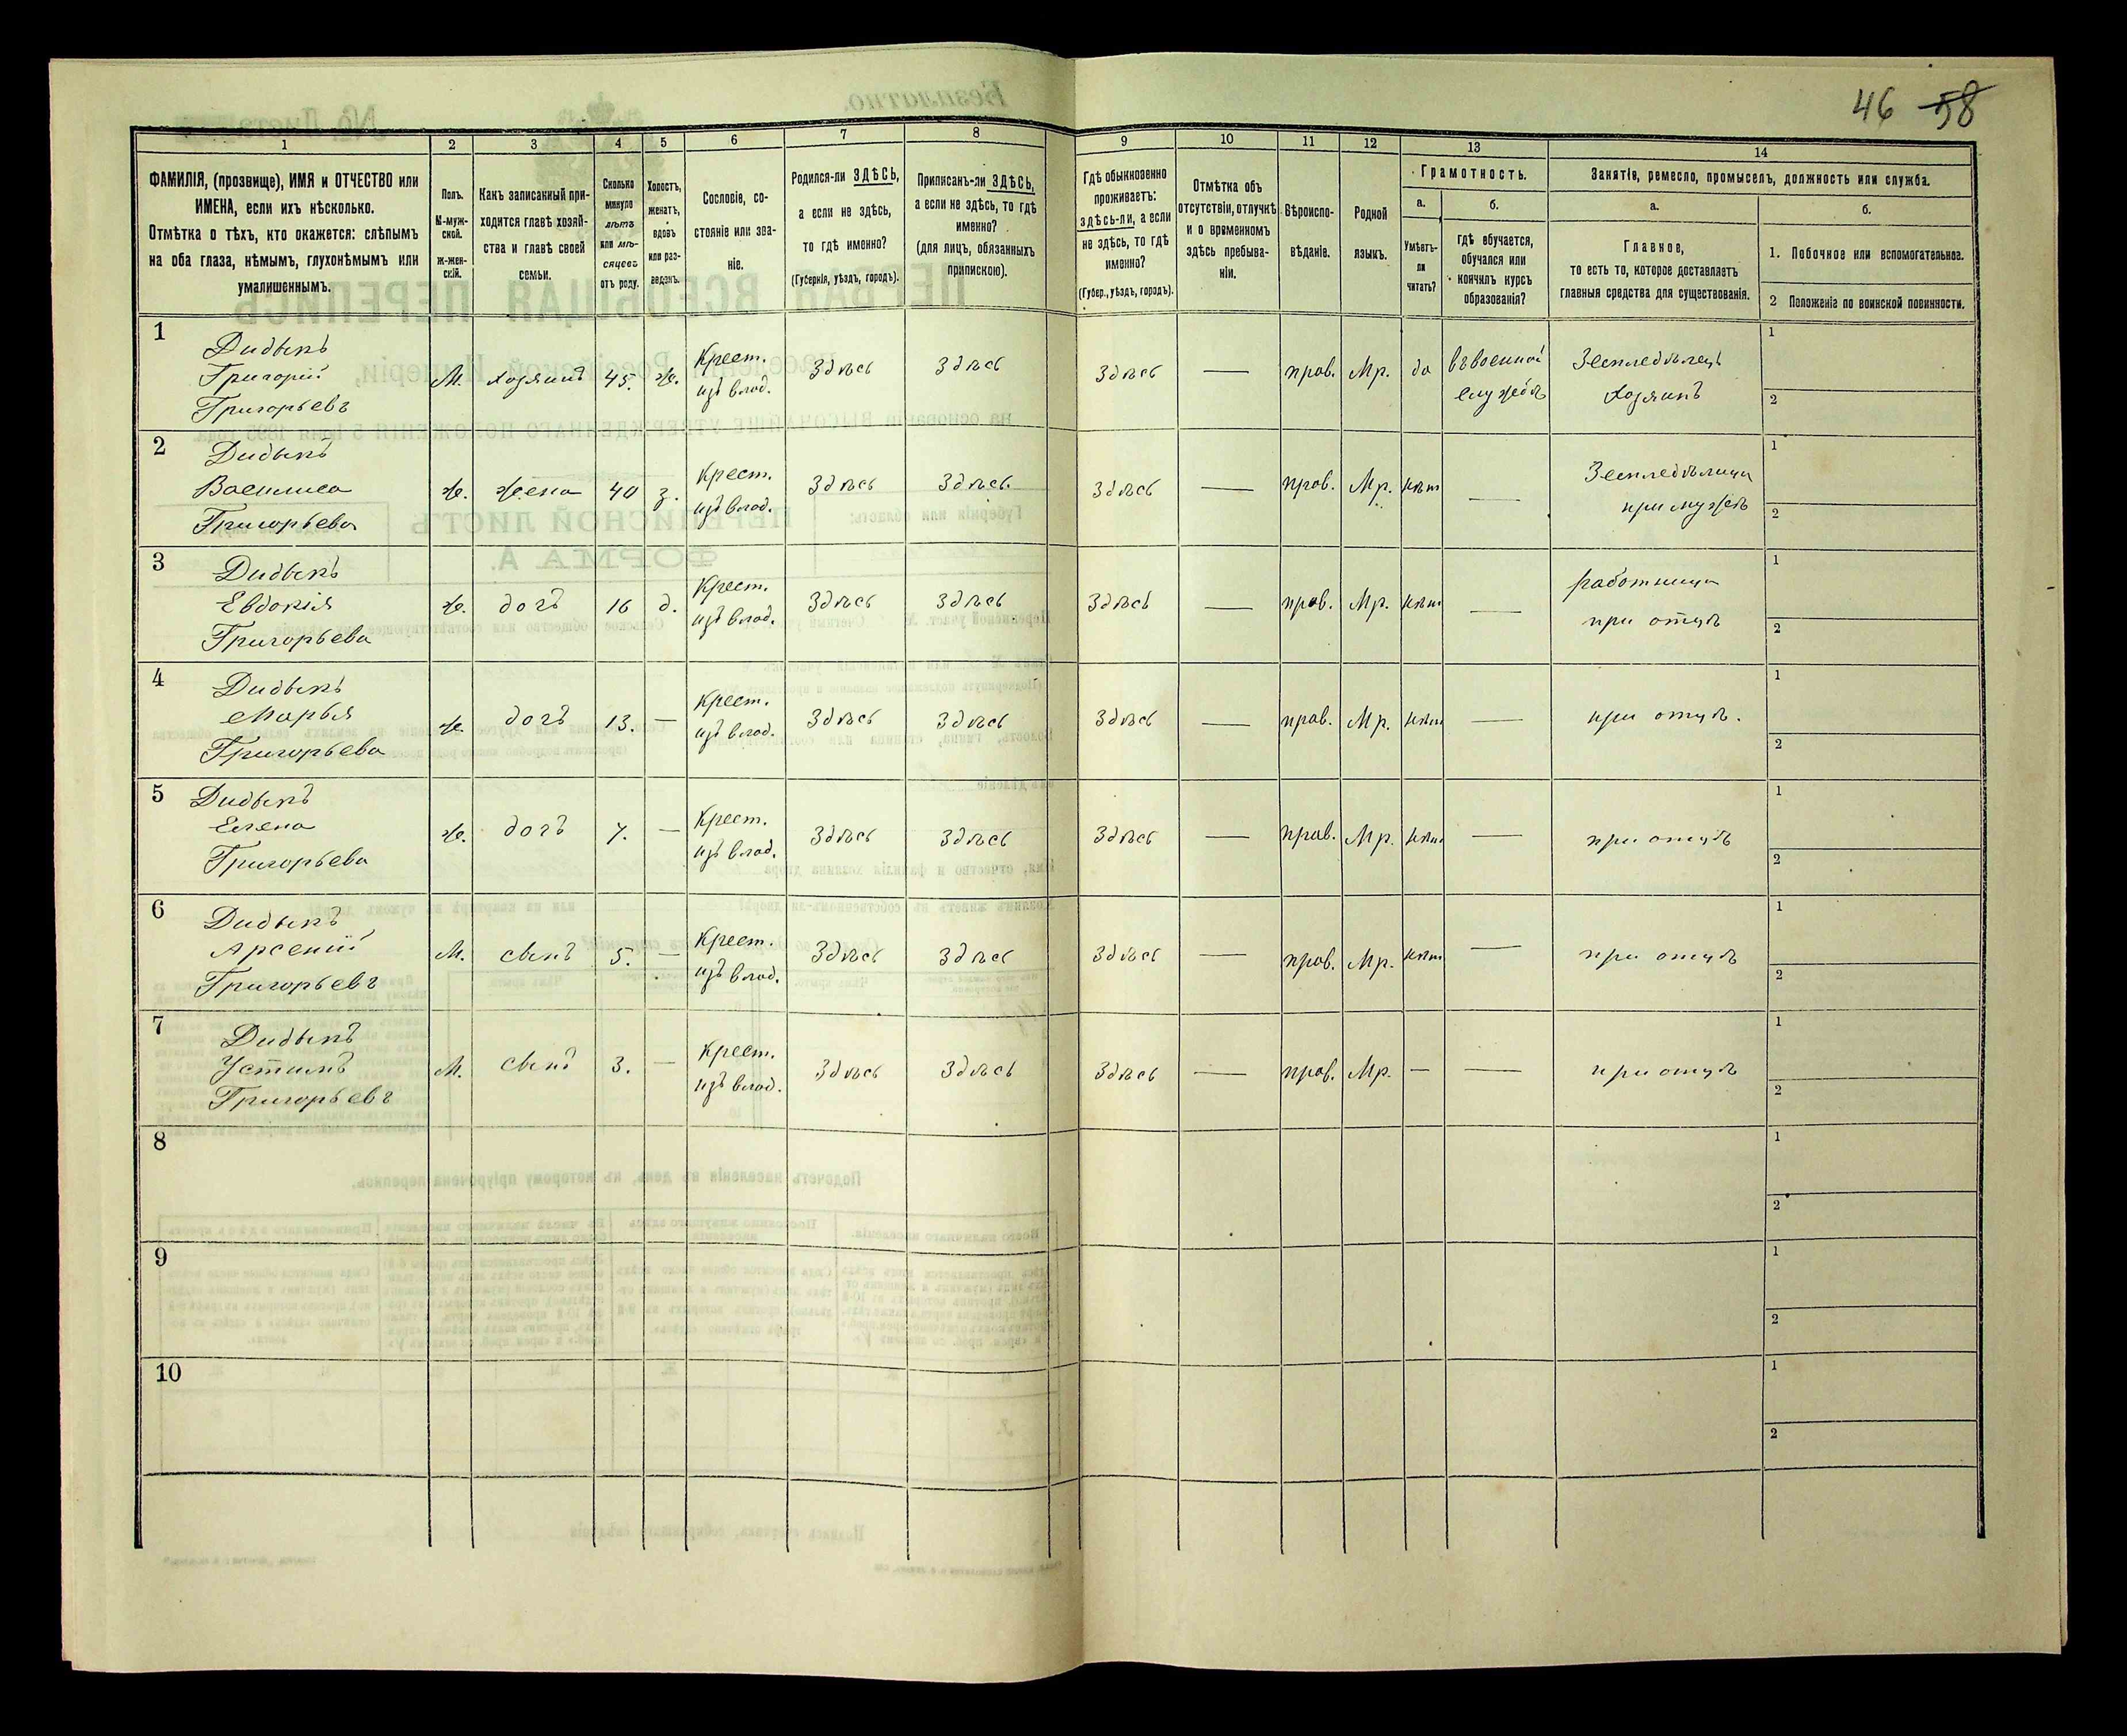 46 58
1
2
3
4
5
6
7
8
9
10
11
12
13
14
ФАМИЛІЯ, (прозвище), ИМЯ и ОТЧЕСТВО или
ИМЕНА, если ихъ нѣсколько.
Отмѣтка о тѣхъ, кто окажется: слѣпымъ
на оба глаза, нѣмымъ, глухонѣмымъ или
умалишеннымъ.
Полъ.
М-муж-
ской.
Ж-жен-
скій.
Какъ записанный при-
ходится главѣ хозяй-
ства и главѣ своей
семьи.
Сколько
минуло
лѣтъ
или мѣ-
сяцевъ
отъ роду.
Холостъ,
женатъ,
вдовъ
или раз-
веденъ.
Сословіе, со-
стояніе или зва-
ніе.
Родился-ли ЗДѢСЬ,
а если не здѣсь,
то гдѣ именно?
(Губернія, уѣздъ, городъ).
Приписанъ-ли ЗДѢСЬ,
а если не здѣсь, то гдѣ
именно?
(для лицъ, обязанныхъ
припискою).
Гдѣ обыкновенно
проживаетъ:
здѣсь-ли, а если
не здѣсь, то гдѣ
именно?
(Губер., уѣздъ, городъ).
Отмѣтка объ
отсутствіи, отлучкѣ
и о временномъ
здѣсь пребыва-
ніи.
Вѣроиспо-
вѣданіе.
Родной
языкъ.
Грамотность.
а.
Умѣетъ-
ли
читать?
б.
гдѣ обучается,
обучался или
кончилъ курсъ
образованія?
Занятіе, ремесло, промыселъ, должность или служба.
а.
Главное,
то есть то, которое доставляетъ
главныя средства для существованія.
б.
1. Побочное или вспомогательное.
2 Положеніе по воинской повинности.
1
Дидыкъ
Григорій
Григорьевъ
М. хозяинъ 45. ж. Крест.
изъ влад.
Здѣсь Здѣсь Здѣсь — прав. Мр. да въ военной
службѣ
Земледѣлецъ
Хозяинъ
1
2
2
Дидыкъ
Василиса
Григорьева
Ж. жена 40 з. Крест.
изъ влад.
Здѣсь Здѣсь Здѣсь — прав. Мр. нѣт —
Земледѣлица
при мужѣ
1
2
3
Дидыкъ
Евдокія
Григорьева
Ж. дочь 16 д. Крест.
изъ влад.
Здѣсь Здѣсь Здѣсь — прав. Мр. нѣт —
работница
при отцѣ
1
2
4
Дидыкъ
Марья
Григорьева
Ж. дочь 13. — Крест.
изъ влад.
Здѣсь Здѣсь Здѣсь — прав. Мр. нѣт —
при отцѣ.
1
2
5
Дидыкъ
Елена
Григорьева
Ж. дочь 7. — Крест.
изъ влад.
Здѣсь Здѣсь Здѣсь — прав. Мр. нѣт —
при отцѣ
1
2
6
Дидыкъ
Арсеній
Григорьевъ
М. сынъ 5. — Крест.
изъ влад.
Здѣсь Здѣсь Здѣсь — прав. Мр. нѣт —
при отцѣ
1
2
7
Дидыкъ
Устинъ
Григорьевъ
М. сынъ 3. — Крест.
изъ влад.
Здѣсь Здѣсь Здѣсь — прав. Мр. — —
при отцѣ
1
2
8
1
2
9
1
2
10
1
2